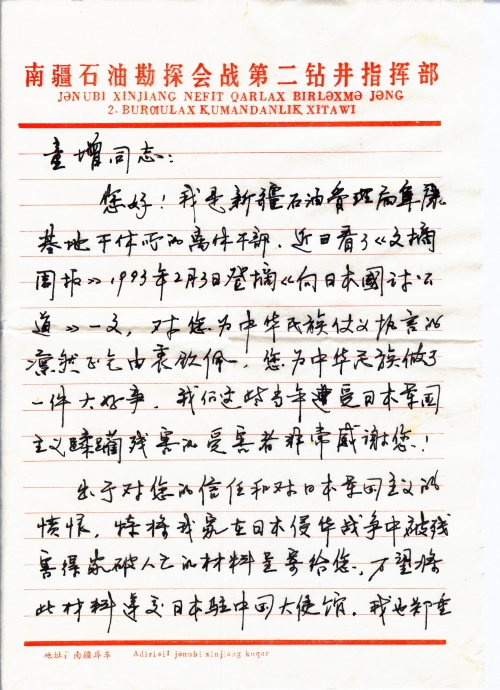 南疆石油勘探会战第二钻井指挥部
JƏNUBI XINJIANG NEFIT QARLAX BIRLƏXMƏ JƏNG
2-BURƢULAX KUMANDANLIK XITAWI
童增同志：
您好！我是新疆石油管理局阜康
基地干休所的离休干部，近日看了《文摘
周报》1993年2月3日登摘《向日本國讨公
道》一文，对您为中华民族仗义执言的
凛然正气由衷钦佩，您为中华民族做了
一件大好事，我们这些当年遭受日本军国
主义蹂躏残害的受害者非常感谢您！
出于对您的信任和对日本军国主义的
愤恨，特将我家在日本侵华战争中被残
害得家破人亡的材料呈寄给您，万望将
此材料递交日本驻中国大使馆，我也郑重
地址：南疆库车
Adirisi: jenubi xinjiang kuqar